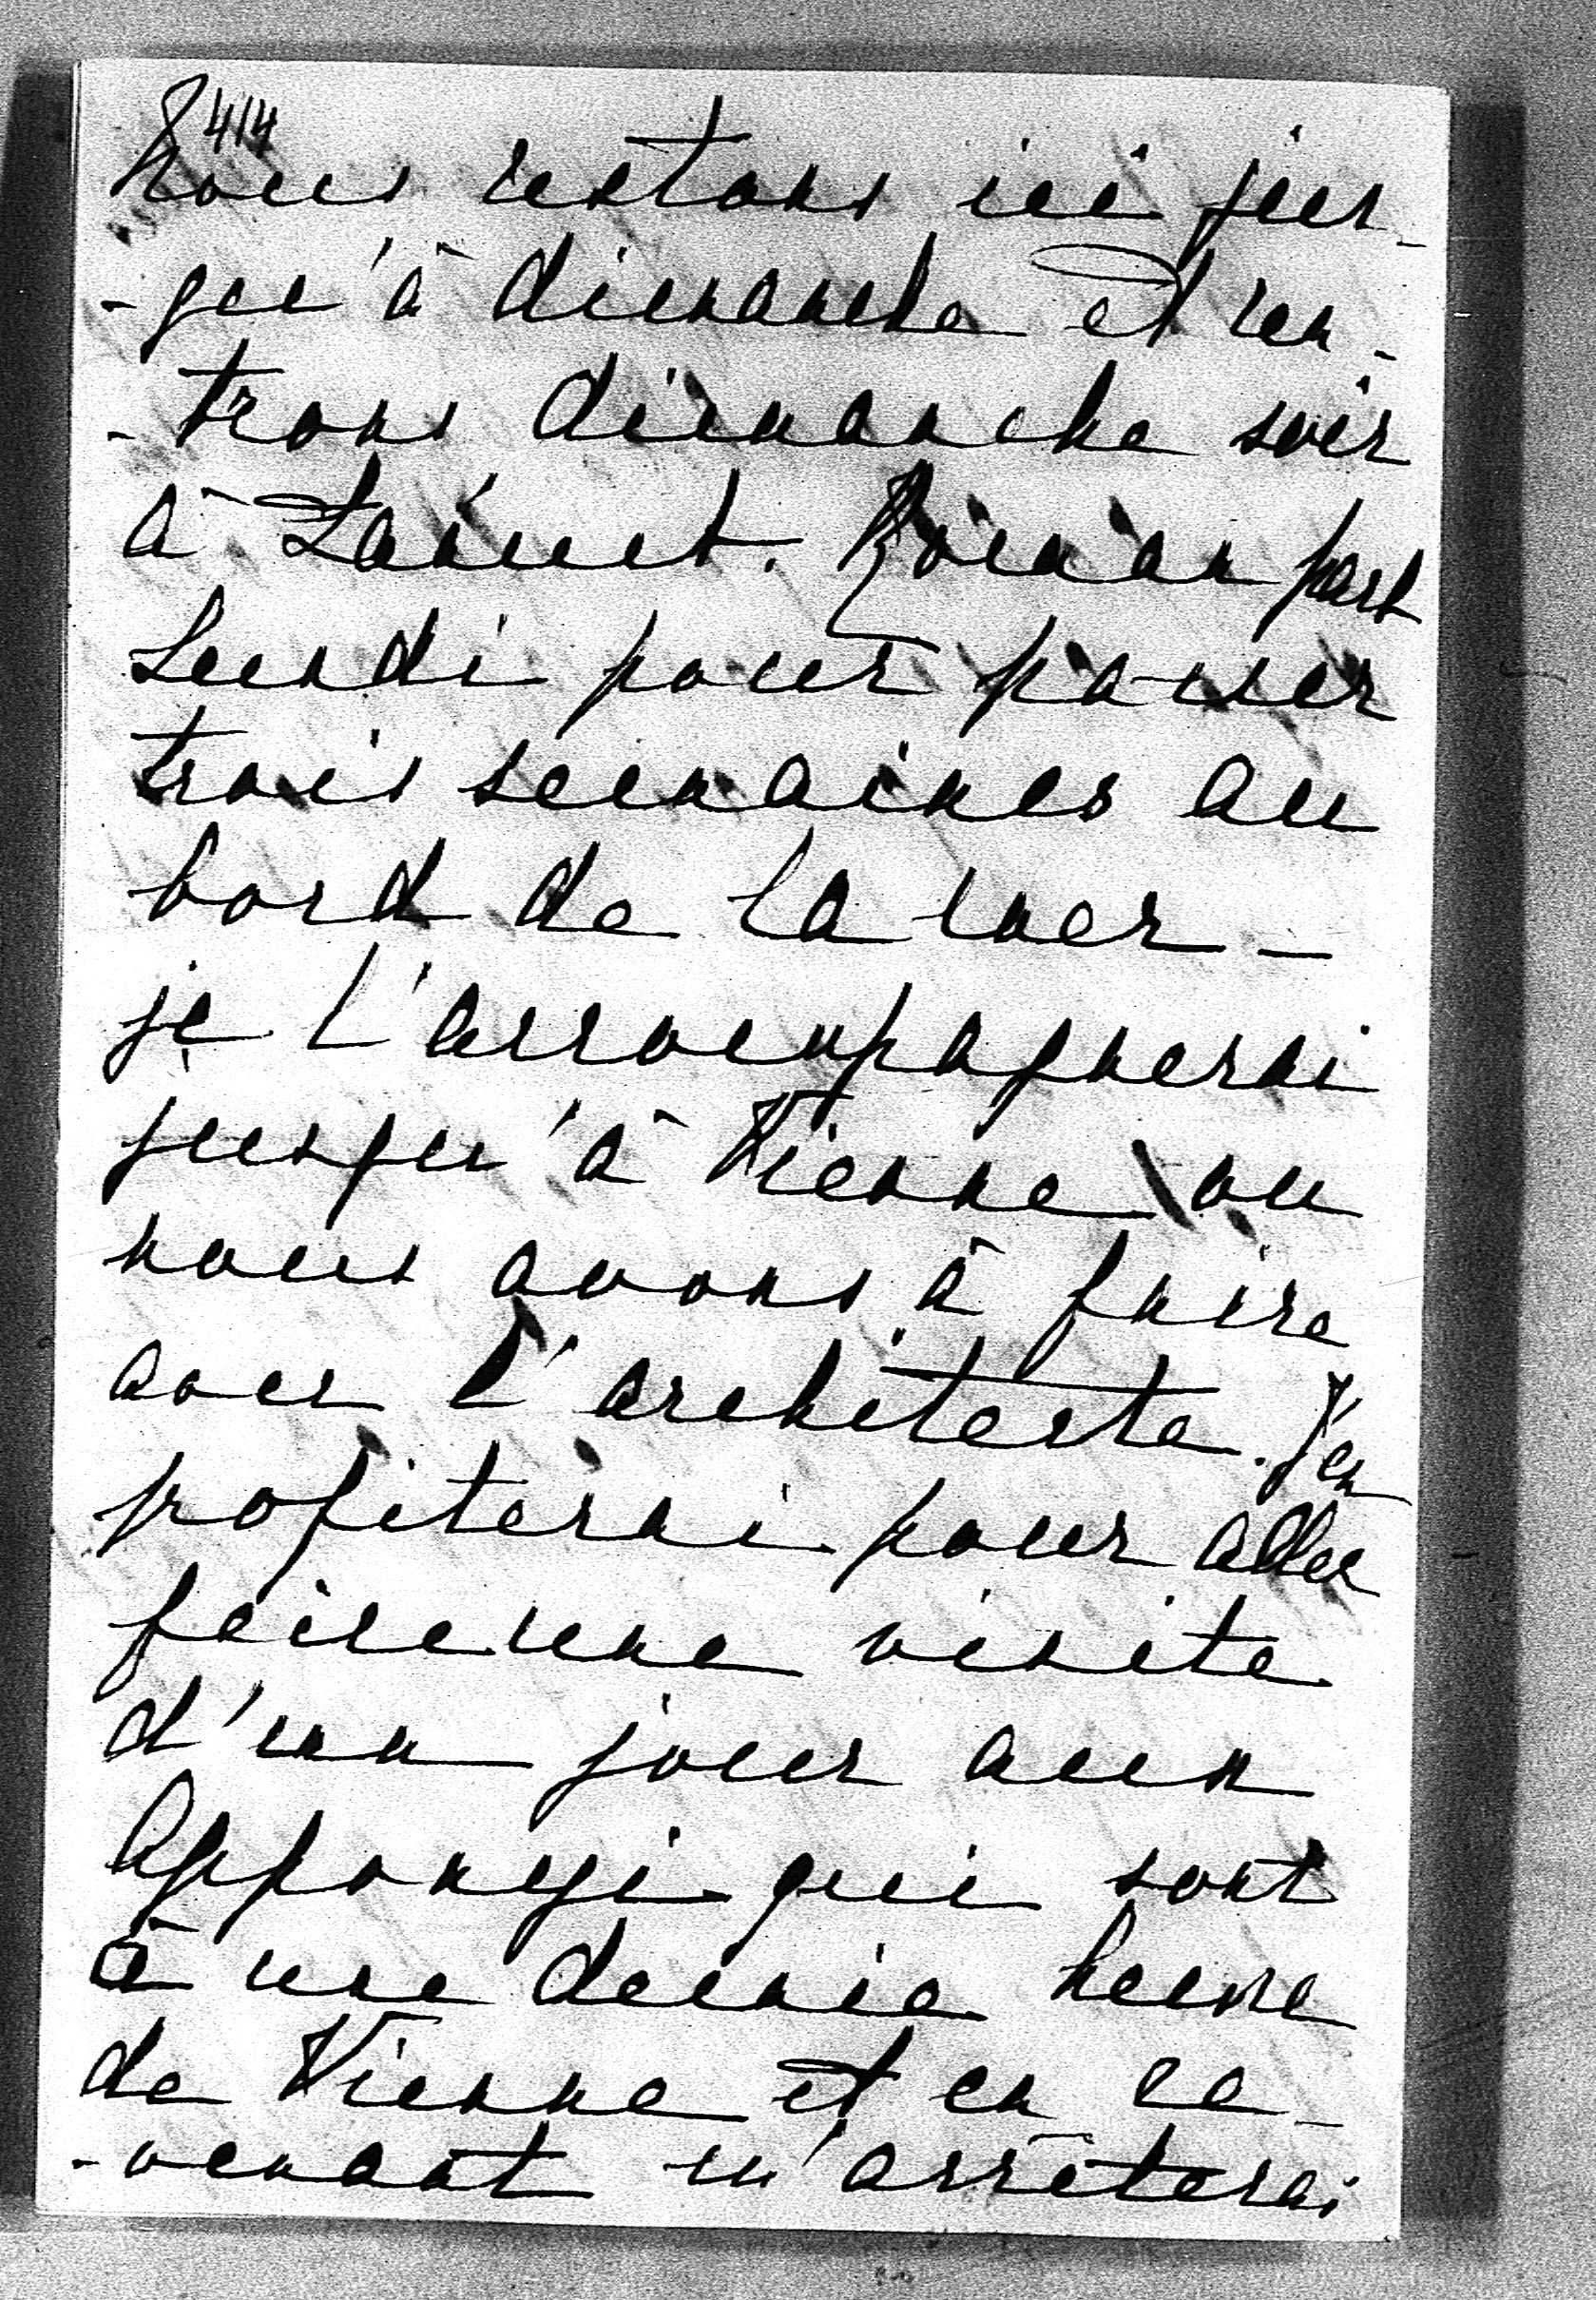 8414
Nous restons ici jus-
-qu'à dimanche et ren-
-trons dimanche soir
à Lancut. Roman part
Lundi pour passer
trois semaines au
bord de la mer -
je l'accompagnerai
jusqu'à Vienne ou
nous avons à faire
avec l'architecte. J'en
profiterai pour aller
faire une visite
d'un jour aux
Apponyi qui sont
à une demie heure
de Vienne et en re-
-venant m'arrêterai